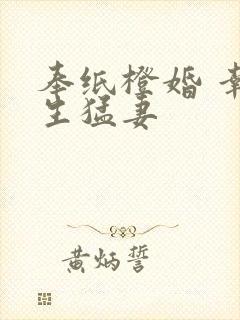 奉纸橙婚 韩
生猛妻
黄炳誓